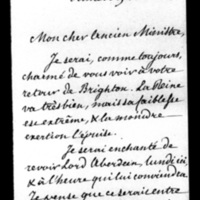 Mon cher Ancien Ministre,
Je serai, comme toujours,
charmé de vous voir à votre
retour de Brighton. La Reine
va très bien, mais sa faiblesse
est extrême, & la moindre
exertion l'épuise.
Je serai enchanté de
revoir Lord Aberdeen, lundi ici
& à l'heure qui lui conviendra
Je pense que ce serait entre